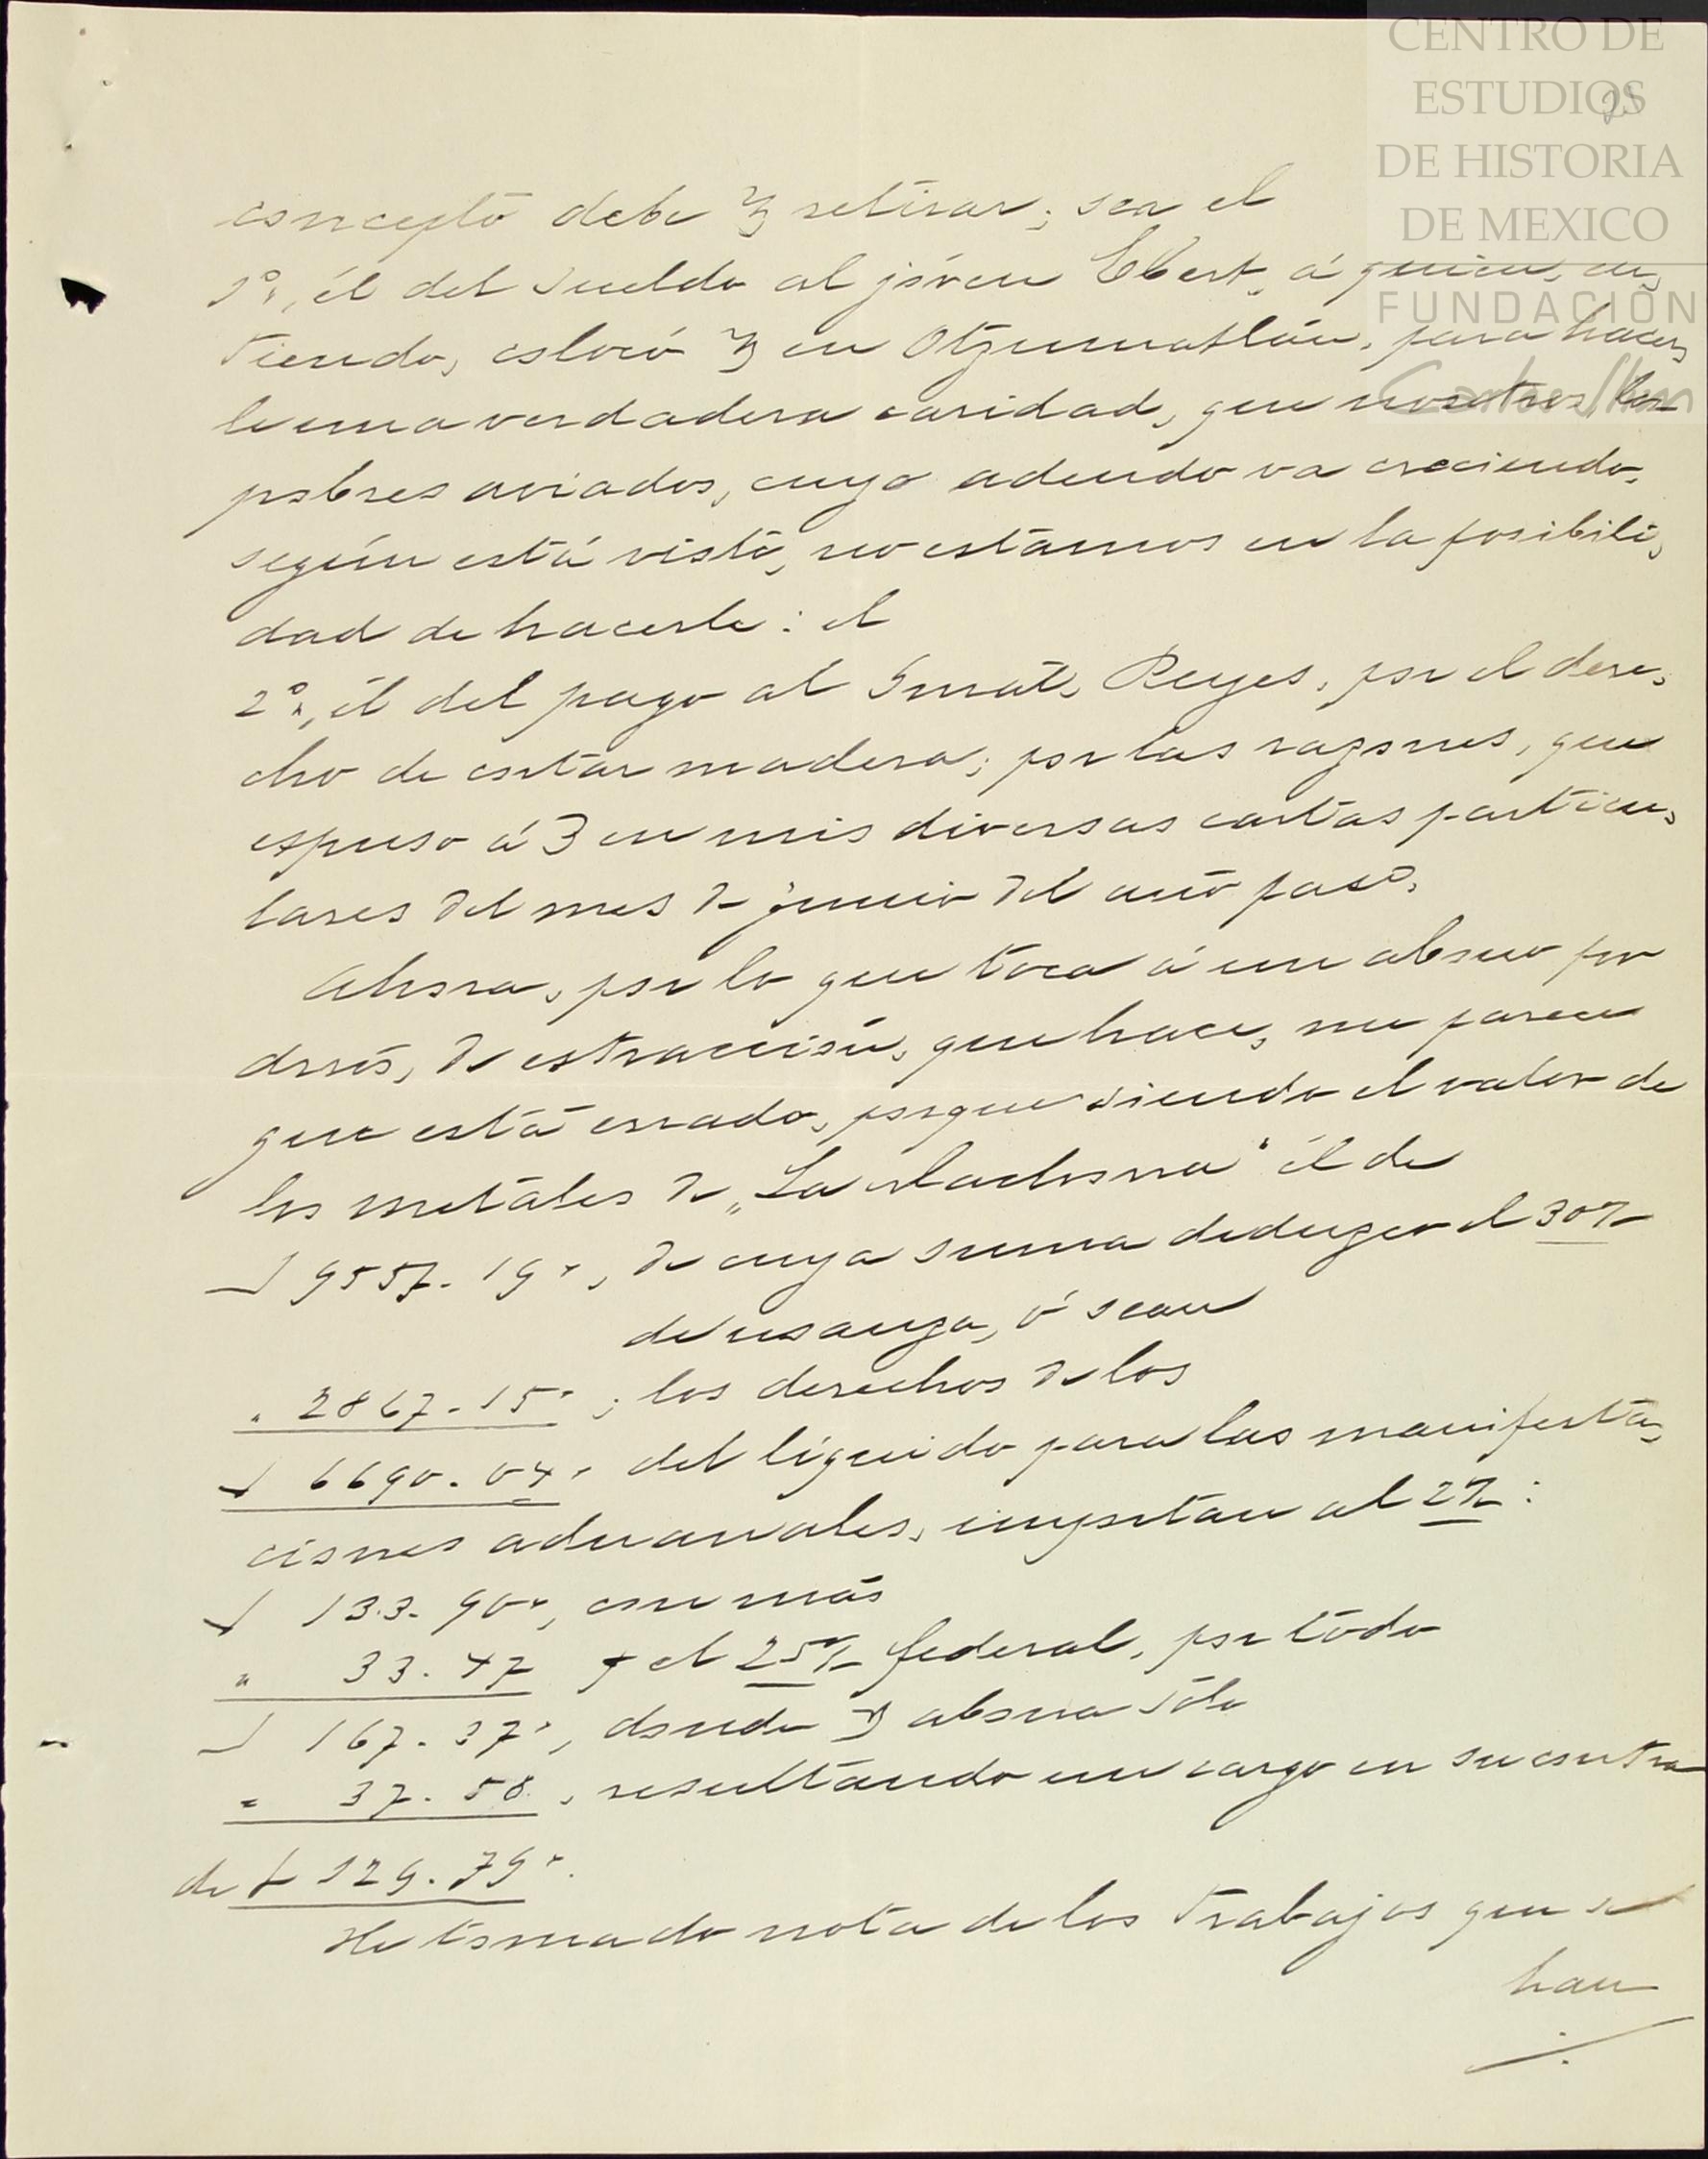 CENTRO DE
ESTUDIOS
DE HISTORIA
DE MEXICO
FUNDACIÓN
Carlos Slim
concepto debe retirar; sea el
1º, él del sueldo al jóven Ebert, á quien, en,
tiendo, colocó en Otzumatlán, para hacer,
le una verdadera caridad, que nosotros, los
pobres aviados, cuyo adeudo va creciendo,
según está visto, no estamos en la posibili,
dad de hacerle: el
2º, él del pago al Reyes, por el dere,
cho de cortar madera; por las razones, que
espuso á en mis diversas cartas particu,
lares del mes de junio del año pasº.
Ahora, por lo que toca á un abono por
dros, de estracción, que hace, me parece
que está errado, porque siendo el valor de
los metales de "La" él de
$ 9557.19", de cuya suma deduzco el 30%
de usanza, ó sean
" 2867.15"; los derechos de los
$ 6690.04" del líquido para las manifesta,
ciones aduanales, importan al 2%:
$ 133.90", con más
" 33.47 el 25% federal, por todo
$ 167.37", donde abona sólo
" 37.58, resultando un cargo en su contra
de $ 129.79".
He tomado nota de los trabajos que se
han